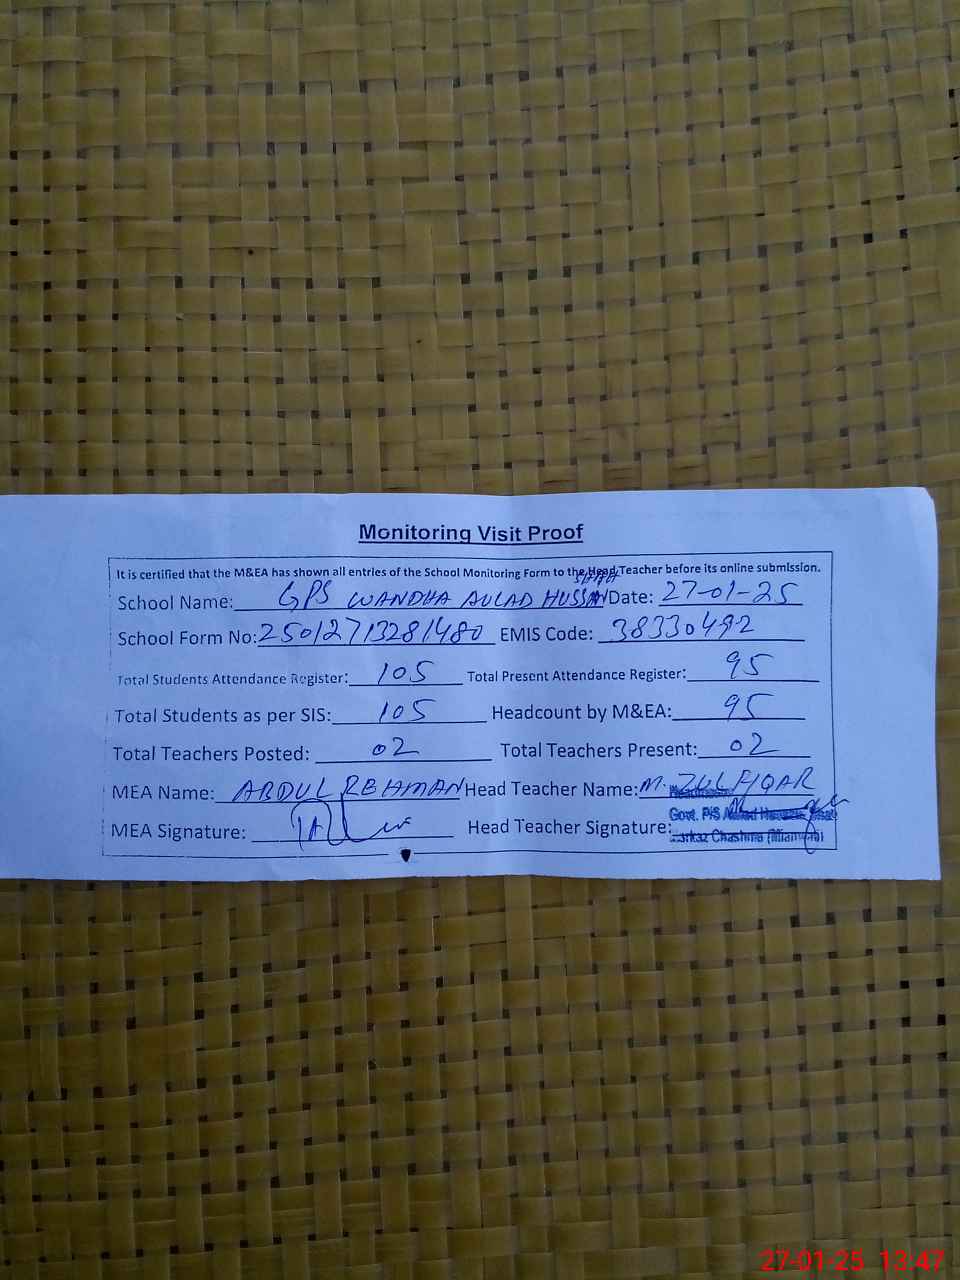 Monitoring Visit Proof
It is certified that the M&EA has shown all entries of the School Monitoring Form to the Head Teacher before its online submission.
SHAH
School Name: GPS WANDHA AULAD HUSSAIN Date: 27-01-25
School Form No: 25012713281480 EMIS Code: 38330492
Total Students Attendance Register: 105 Total Present Attendance Register: 95
Total Students as per SIS: 105 Headcount by M&EA: 95
Total Teachers Posted: 02 Total Teachers Present: 02
MEA Name: ABDUL REHMAN Head Teacher Name: M. ZULFIQAR
Govt. P/S
MEA Signature: Head Teacher Signature:
Markaz Chashma (Mianwali)
27-01-25 13:47